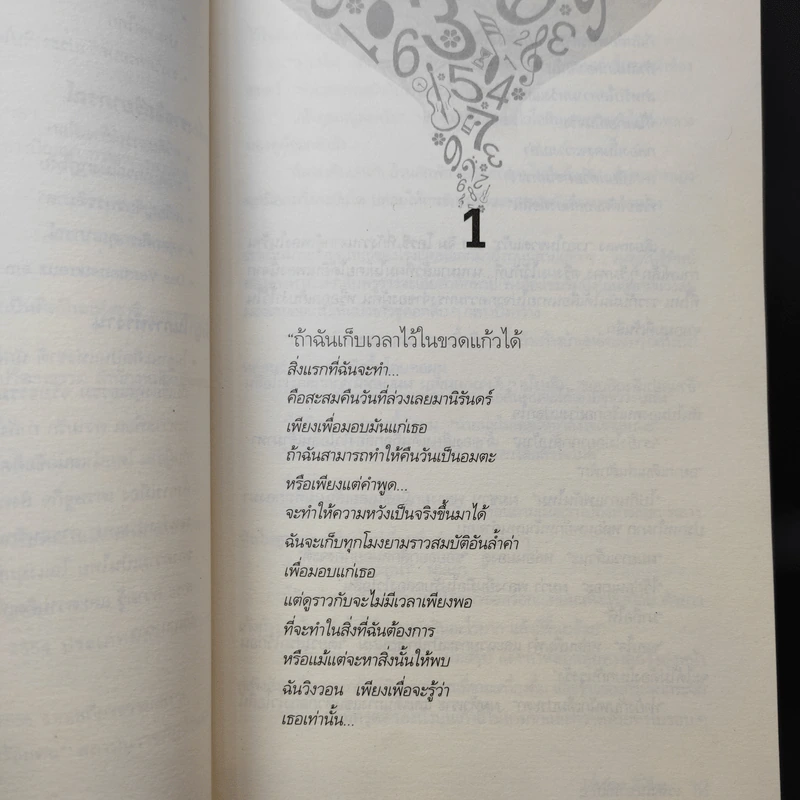 1
“ถ้าฉันเก็บเวลาไว้ในขวดแก้วได้
สิ่งแรกที่ฉันจะทำ...
คือสะสมคืนวันที่ล่วงเลยมานิรันดร์
เพียงเพื่อมอบมันแก่เธอ
ถ้าฉันสามารถทำให้คืนวันเป็นอมตะ
หรือเพียงแต่คำพูด...
จะทำให้ความหวังเป็นจริงขึ้นมาได้
ฉันจะเก็บทุกโมงยามราวสมบัติอันล้ำค่า
เพื่อมอบแก่เธอ
แต่ดูราวกับจะไม่มีเวลาเพียงพอ
ที่จะทำในสิ่งที่ฉันต้องการ
หรือแม้แต่จะหาสิ่งนั้นให้พบ
ฉันวิงวอน เพียงเพื่อจะรู้ว่า
เธอเท่านั้น...